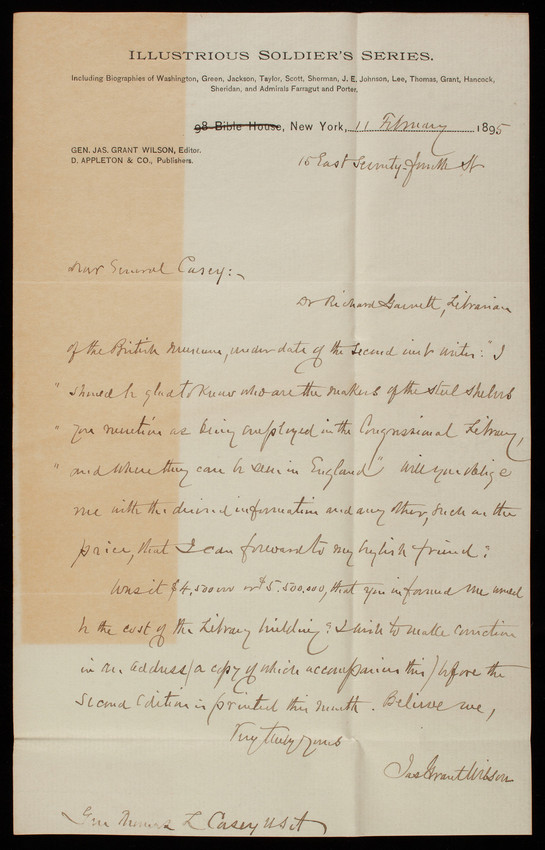 ILLUSTRIOUS SOLDIER'S SERIES.
Including Biographies of Washington, Green, Jackson, Taylor, Scott, Sherman, J. E. Johnson, Lee, Thomas, Grant, Hancock,
Sheridan, and Admirals Farragut and Porter.
98 Bible House, New York, 11 February 1895
GEN. JAS. GRANT WILSON, Editor.
D. APPLETON & CO., Publishers.
15 East Seventy-fourth St
Dear General Casey:-
Dr Richard Garnett, Librarian
of the British Museum, under date of the second inst writes: "I
" should be glad to know who are the makers of the steel shelves
" you mention as being employed in the Congressional Library,
" and where they can be seen in England" Will you oblige
me with the desired information and any other, such as the
price, that I can forward to my English friend?
Was it $4,500000 or $5.500,000, that you informed me would
be the cost of the Library building? I wish to make correction
in an address (a copy of which accompanies this) before the
second edition is printed this month. Believe me,
Very truly yours
Jas Grant Wilson
Gen Thomas L Casey USA